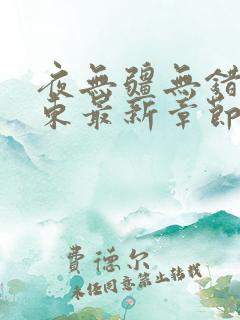 夜無疆無錯
東最新章節
費德尔
未经同意禁止转载